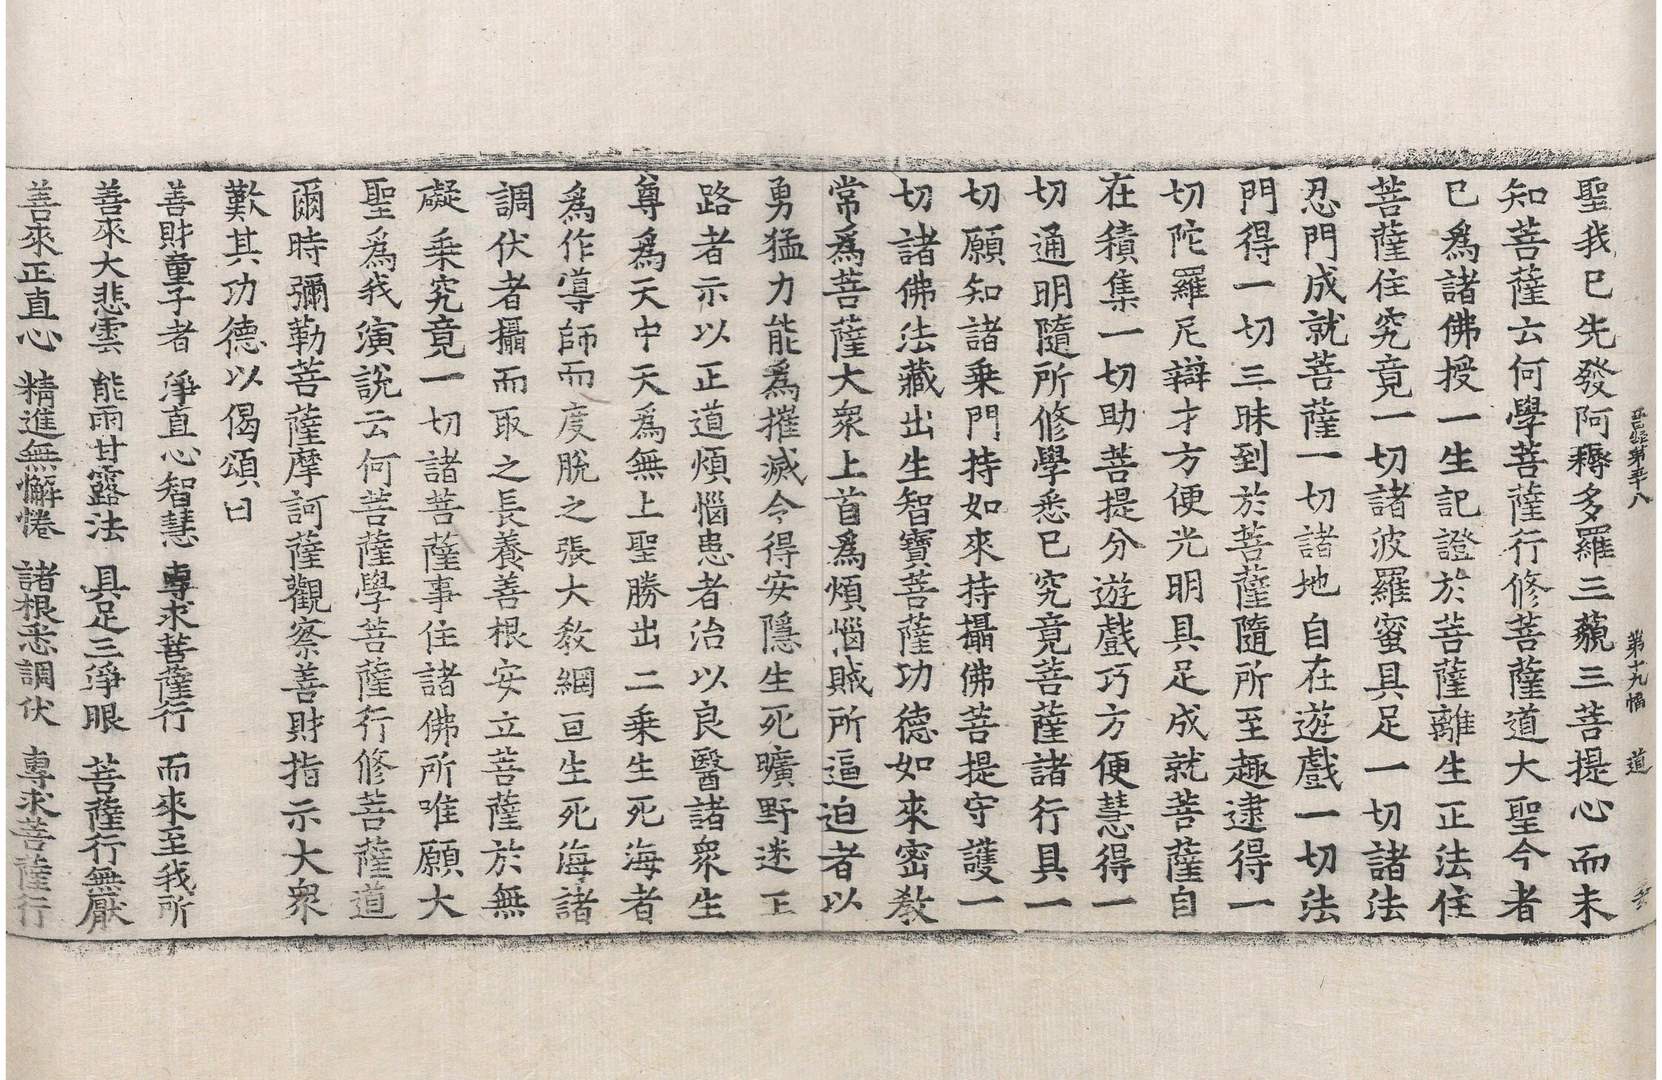 晋經第五十八　第十九幅　道
聖我已先發阿耨多羅三藐三菩提心而未
知菩薩云何學菩薩行修菩薩道大聖今者
已爲諸佛授一生記證於菩薩離生正法住
菩薩住究竟一切諸波羅蜜具足一切諸法
忍門成就菩薩一切諸地自在遊戲一切法
門得一切三昧到於菩薩隨所至趣逮得一
切陀羅尼辯才方便光明具足成就菩薩自
在積集一切助菩提分遊戲巧方便慧得一
切通明隨所修學悉已究竟菩薩諸行具一
切願知諸乘門持如來持攝佛菩提守護一
切諸佛法藏出生智寶菩薩功德如來密教
常爲菩薩大衆上首爲煩惱賊所逼迫者以
勇猛力能爲摧滅今得安隱生死曠野迷正
路者示以正道煩惱患者治以良醫諸衆生
尊爲天中天爲無上聖勝出二乘生死海者
爲作導師而度脫之張大教網亘生死海諸
調伏者攝而取之長養善根安立菩薩於無
礙乘究竟一切諸菩薩事住諸佛所唯願大
聖爲我演說云何菩薩學菩薩行修菩薩道
爾時彌勒菩薩摩訶薩觀察善財指示大衆
歎其功德以偈頌曰
善財童子者　淨直心智慧　專求菩薩行　而來至我所
善來大悲雲　能雨甘露法　具足三淨眼　菩薩行無厭
善來正直心　精進無懈惓　諸根悉調伏　專求菩薩行